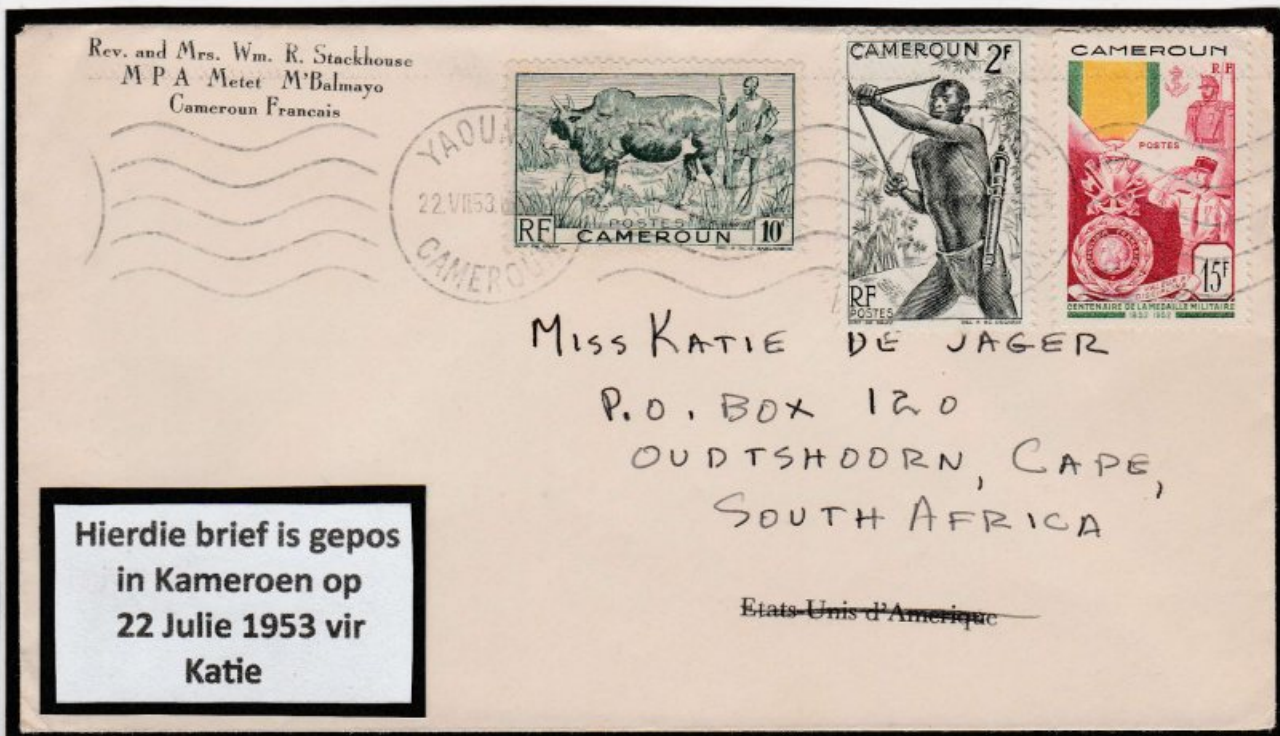 Rev. and Mrs. Wm. R. Stackhouse
M P A Metet M'Balmayo
Cameroun Francais
YAOUN
22.VII.53
CAMEROUN
RF
POSTES
10F
CAMEROUN
CAMEROUN 2F
RF
POSTES
CAMEROUN
RF
POSTES
15F
CENTENAIRE DE LA MEDAILLE MILITAIRE
1852 1952
MISS KATIE DE JAGER
P.O. BOX 120
OUDTSHOORN, CAPE,
SOUTH AFRICA
Etats-Unis d'Amerique
Hierdie brief is gepos
in Kameroen op
22 Julie 1953 vir
Katie